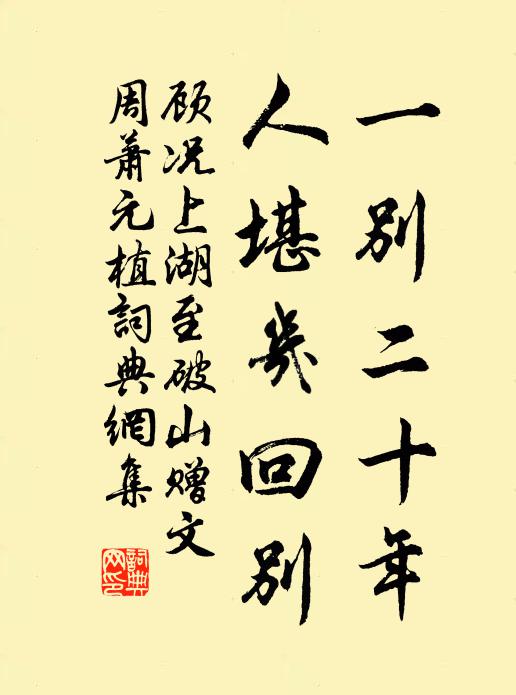 一别二十年
人堪幾回别
顾况上湖至破山赠文
周萧元植詞典網集
詞典
网印